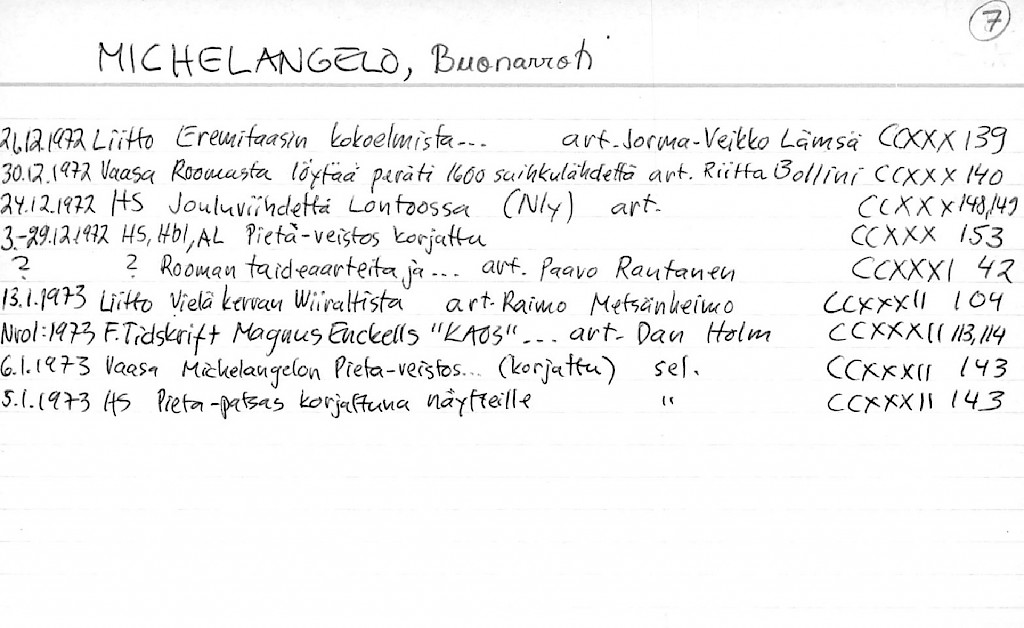 7
MICHELANGELO, Buonarroti
21.12.1972 Liitto Eremitaasin kokoelmista--- art. Jorma-Veikko Lämsä CCXXX 139
30.12.1972 Vaasa Roomasta löytää peräti 1600 suihkulähdettä art. Riitta Bollini CCXXX 140
24.12.1972 HS Jouluviihdettä Lontoossa (Nly) art. CCXXX 148,149
3.-29.12.1972 HS, Hbl, AL Pietà-veistos korjattu CCXXX 153
? ? Rooman taideaarteita ja... art. Paavo Rautanen CCXXXI 42
13.1.1973 Liitto Vielä kerran Wiiraltista art. Raimo Metsänheimo CCXXXII 104
Nro1:1973 F.Tidskrift Magnus Enckells "KAOS"... art. Dan Holm CCXXXII 113,114
6.1.1973 Vaasa Michelangelon Pieta-veistos... (korjattu) sel. CCXXXII 143
5.1.1973 HS Pieta-patsas korjattuna näytteille " CCXXXII 143